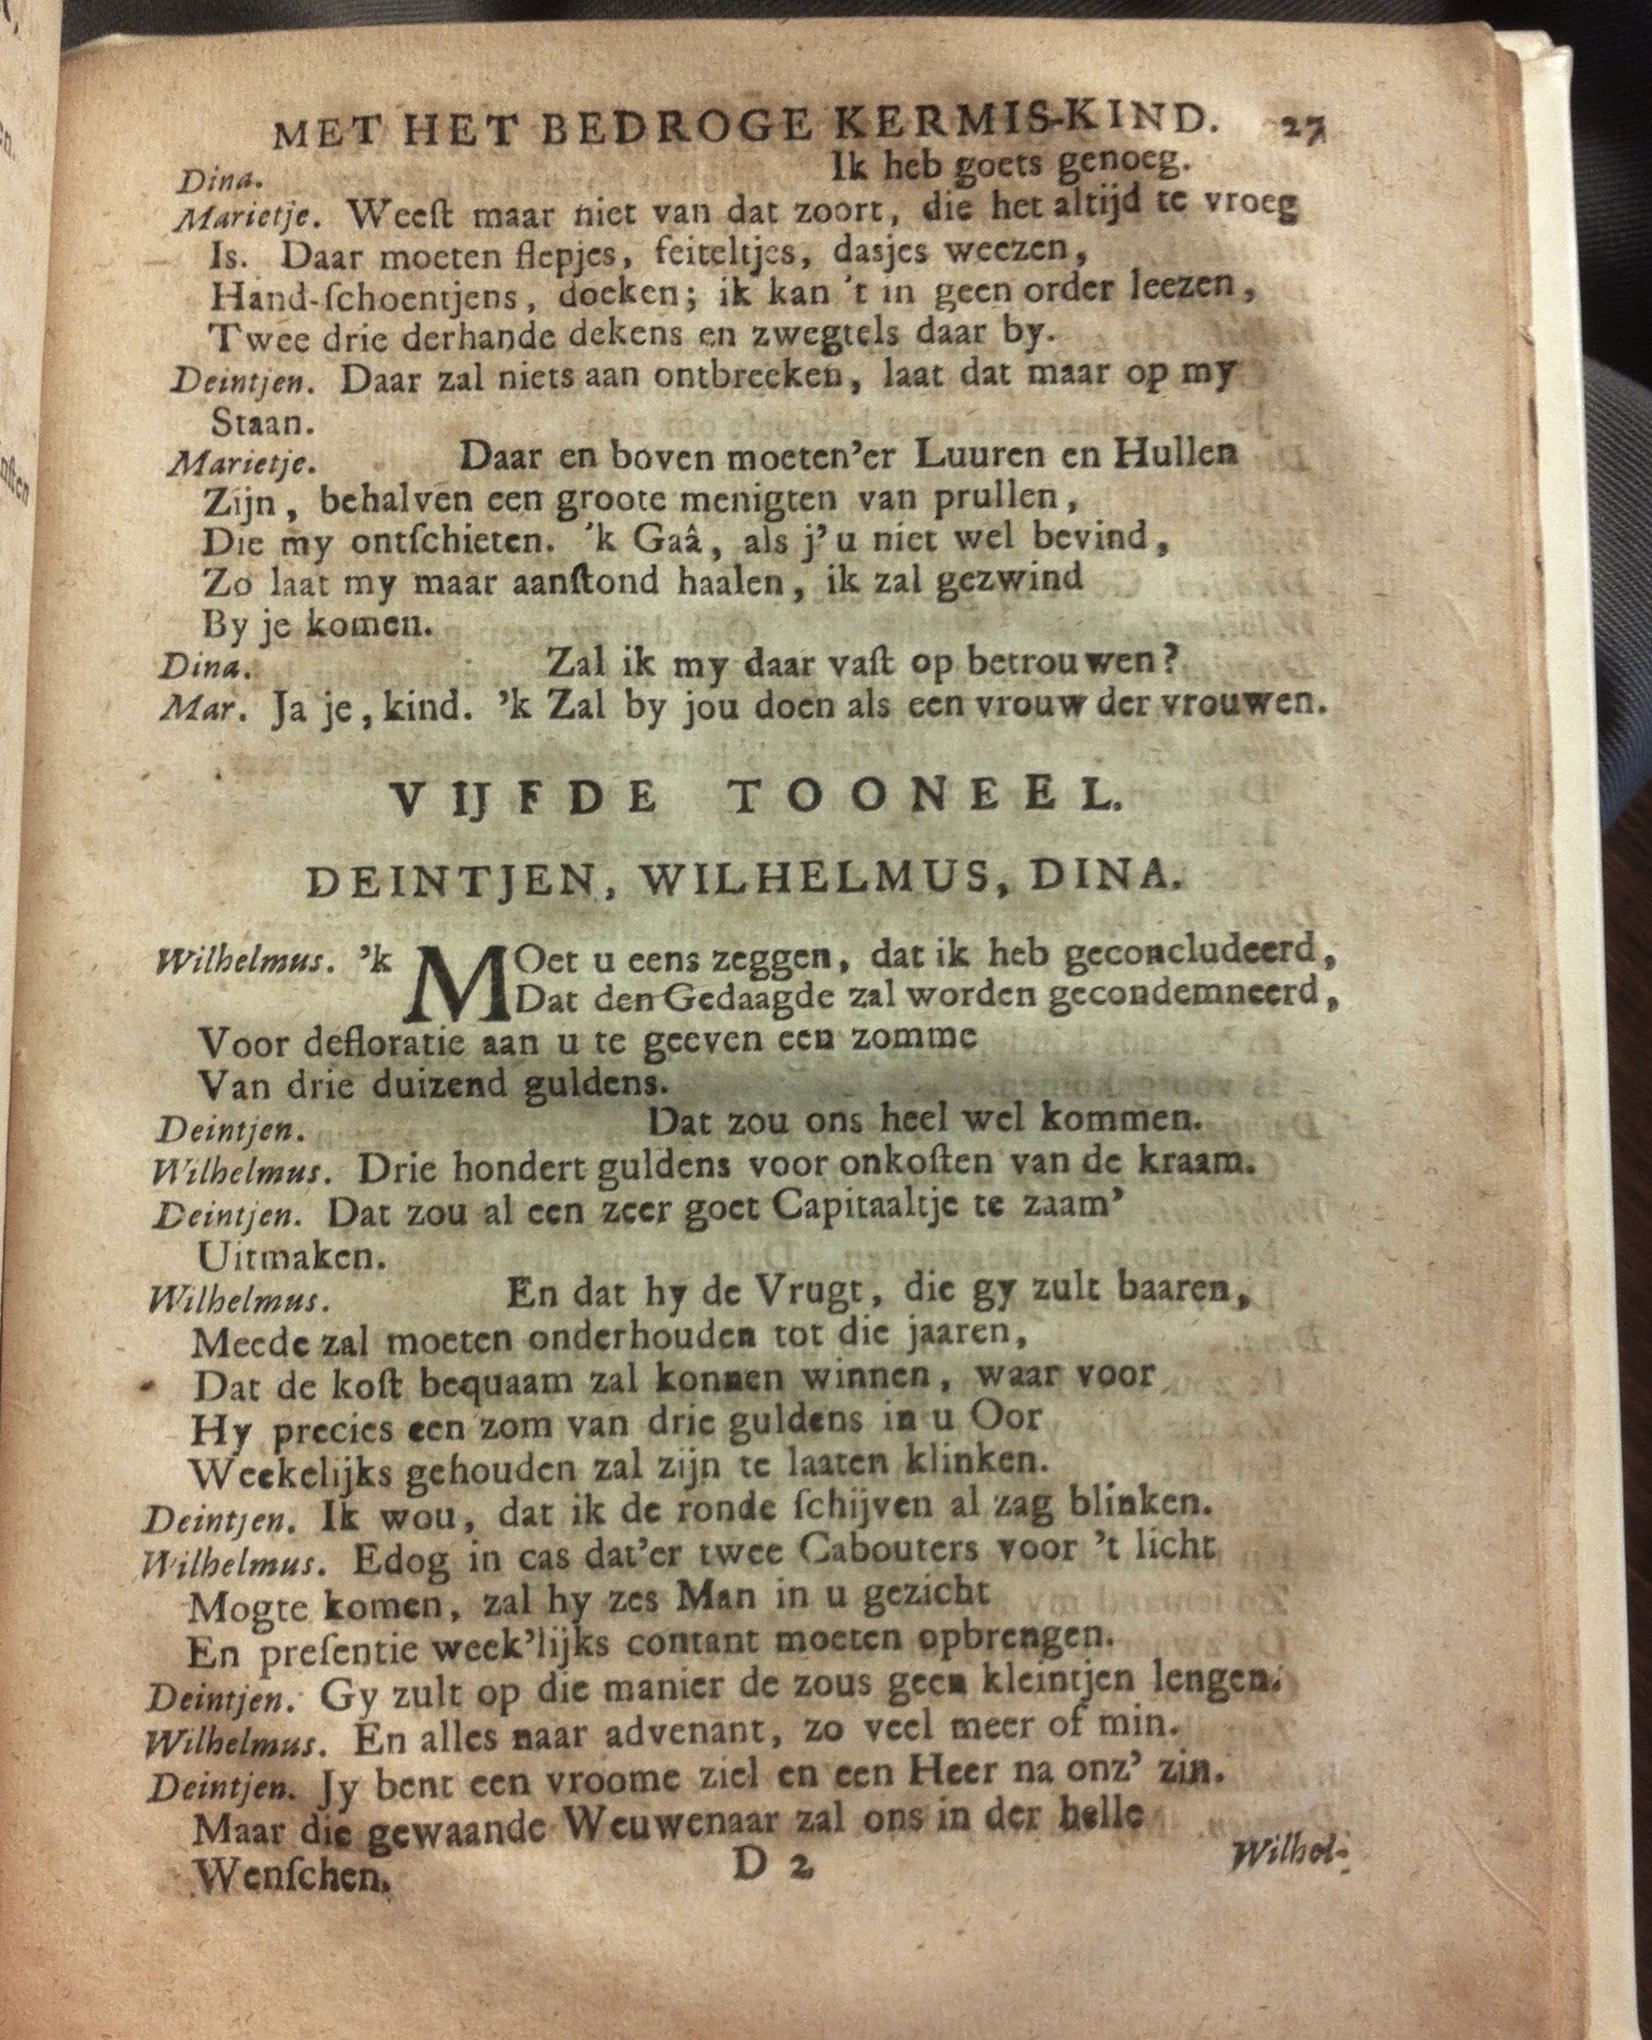 MET HET BEDROGE KERMIS-KIND. 27
Dina. Ik heb goets genoeg.
Marietje. Weeſt maar niet van dat zoort, die het altijd te vroeg
Is. Daar moeten flepjes, feiteltjes, dasjes weezen,
Hand-ſchoentjens, doeken; ik kan 't in geen order leezen,
Twee drie derhande dekens en zwegtels daar by.
Deintjen. Daar zal niets aan ontbreeken, laat dat maar op my
Staan.
Marietje. Daar en boven moeten'er Luuren en Hullen
Zijn, behalven een groote menigten van prullen,
Die my ontſchieten. 'k Gaâ, als j'u niet wel bevind,
Zo laat my maar aanſtond haalen, ik zal gezwind
By je komen.
Dina. Zal ik my daar vaſt op betrouwen?
Mar. Ja je, kind. 'k Zal by jou doen als een vrouw der vrouwen.
VIJFDE TOONEEL.
DEINTJEN, WILHELMUS, DINA.
Wilhelmus. 'k MOet u eens zeggen, dat ik heb geconcludeerd,
Dat den Gedaagde zal worden gecondemneerd,
Voor defloratie aan u te geeven een zomme
Van drie duizend guldens.
Deintjen. Dat zou ons heel wel kommen.
Wilhelmus. Drie hondert guldens voor onkoſten van de kraam.
Deintjen. Dat zou al een zeer goet Capitaaltje te zaam'
Uitmaken.
Wilhelmus. En dat hy de Vrugt, die gy zult baaren,
Meede zal moeten onderhouden tot die jaaren,
Dat de koſt bequaam zal konnen winnen, waar voor
Hy precies een zom van drie guldens in u Oor
Weekelijks gehouden zal zijn te laaten klinken.
Deintjen. Ik wou, dat ik de ronde ſchijven al zag blinken.
Wilhelmus. Edog in cas dat'er twee Cabouters voor 't licht
Mogte komen, zal hy zes Man in u gezicht
En preſentie week'lijks contant moeten opbrengen.
Deintjen. Gy zult op die manier de zous geen kleintjen lengen.
Wilhelmus. En alles naar advenant, zo veel meer of min.
Deintjen. Jy bent een vroome ziel en een Heer na onz' zin.
Maar die gewaande Weuwenaar zal ons in der helle
Wenſchen. D 2 Wilhel-